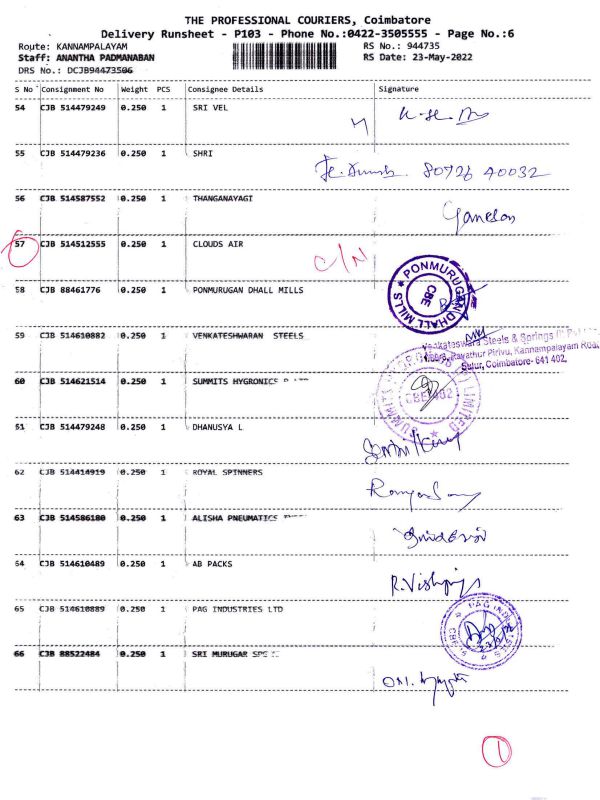 THE PROFESSIONAL COURIERS, Coimbatore
Delivery Runsheet - P103 - Phone No.:0422-3505555 - Page No.:6
Route: KANNAMPALAYAM RS No.: 944735
Staff: ANANTHA PADMANABAN RS Date: 23-May-2022
DRS No.: DCJB94473506
S No Consignment No Weight PCS Consignee Details Signature
54 CJB 514479249 0.250 1 SRI VEL
55 CJB 514479236 0.250 1 SHRI
80726 40032
56 CJB 514587552 0.250 1 THANGANAYAGI
Ganesan
57 CJB 514512555 0.250 1 CLOUDS AIR
C/N
58 CJB 88461776 0.250 1 PONMURUGAN DHALL MILLS
PONMURUGAN DHALL MILLS
CBE
59 CJB 514610882 0.250 1 VENKATESHWARAN STEELS
Venkateswara Steels & Springs
Ravathur Pirivu, Kannampalayam Road
Sulur, Coimbatore- 641 402.
60 CJB 514621514 0.250 1 SUMMITS HYGRONICS
LIMITED
61 CJB 514479248 0.250 1 DHANUSYA L
62 CJB 514414919 0.250 1 ROYAL SPINNERS
63 CJB 514586180 0.250 1 ALISHA PNEUMATICS
64 CJB 514610489 0.250 1 AB PACKS
65 CJB 514610889 0.250 1 PAG INDUSTRIES LTD
PAG INDUSTRIES
66 CJB 88522484 0.250 1 SRI MURUGAR
1